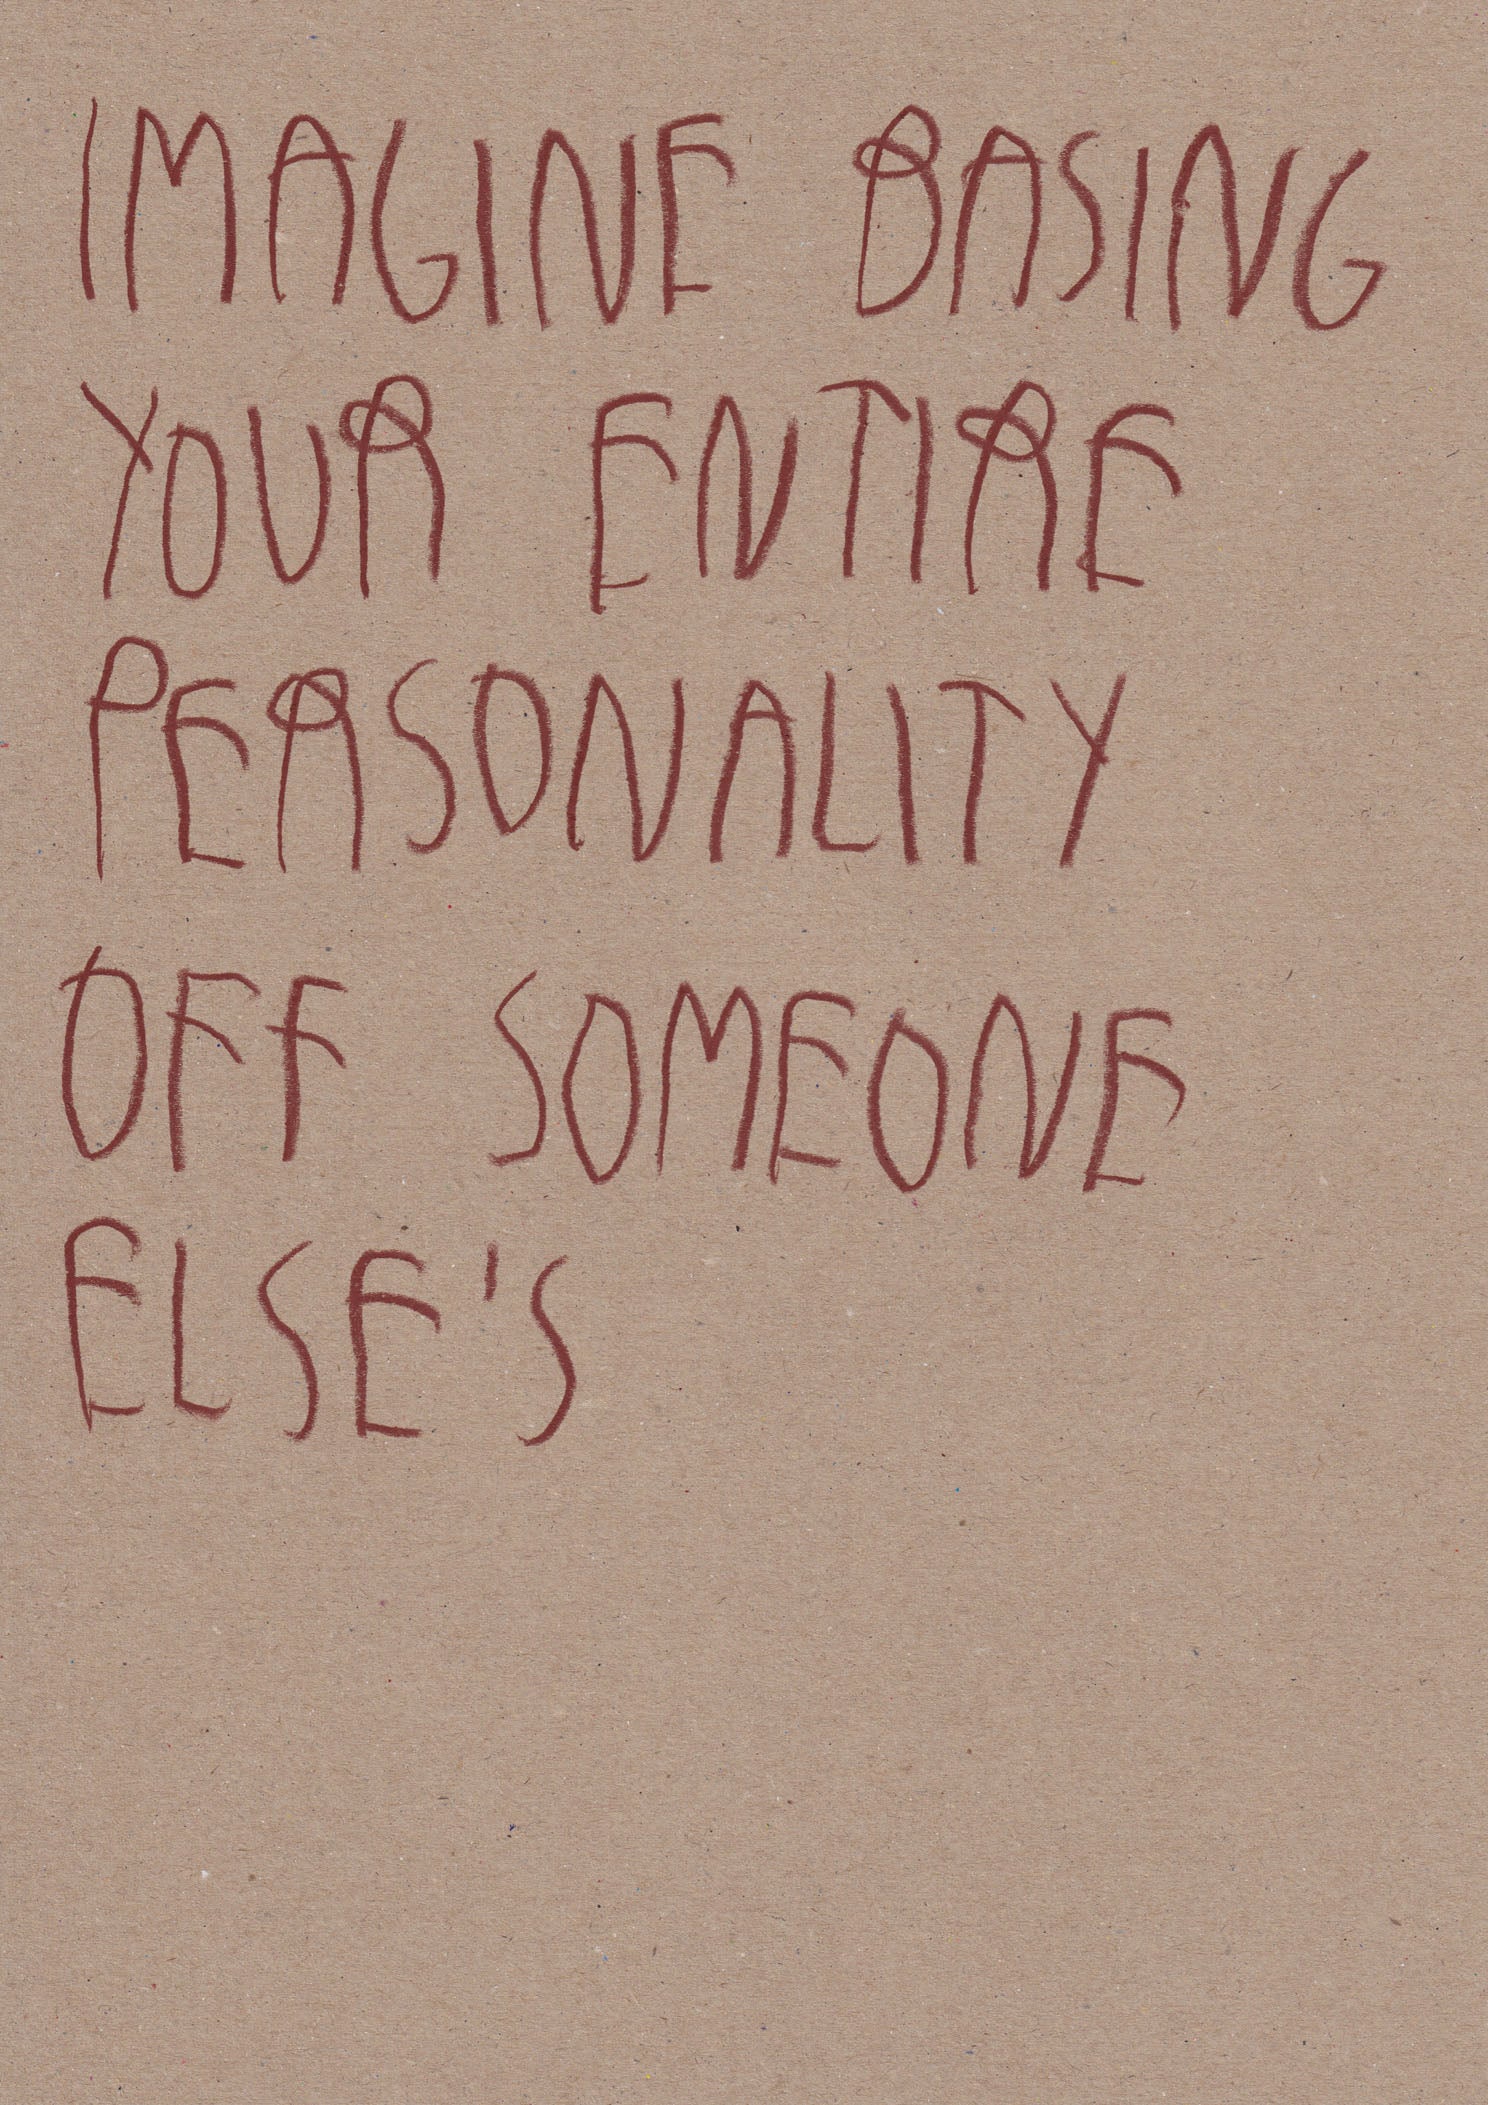 IMAGINE BASING
YOUR ENTIRE
PERSONALITY
OFF SOMEONE
ELSE'S